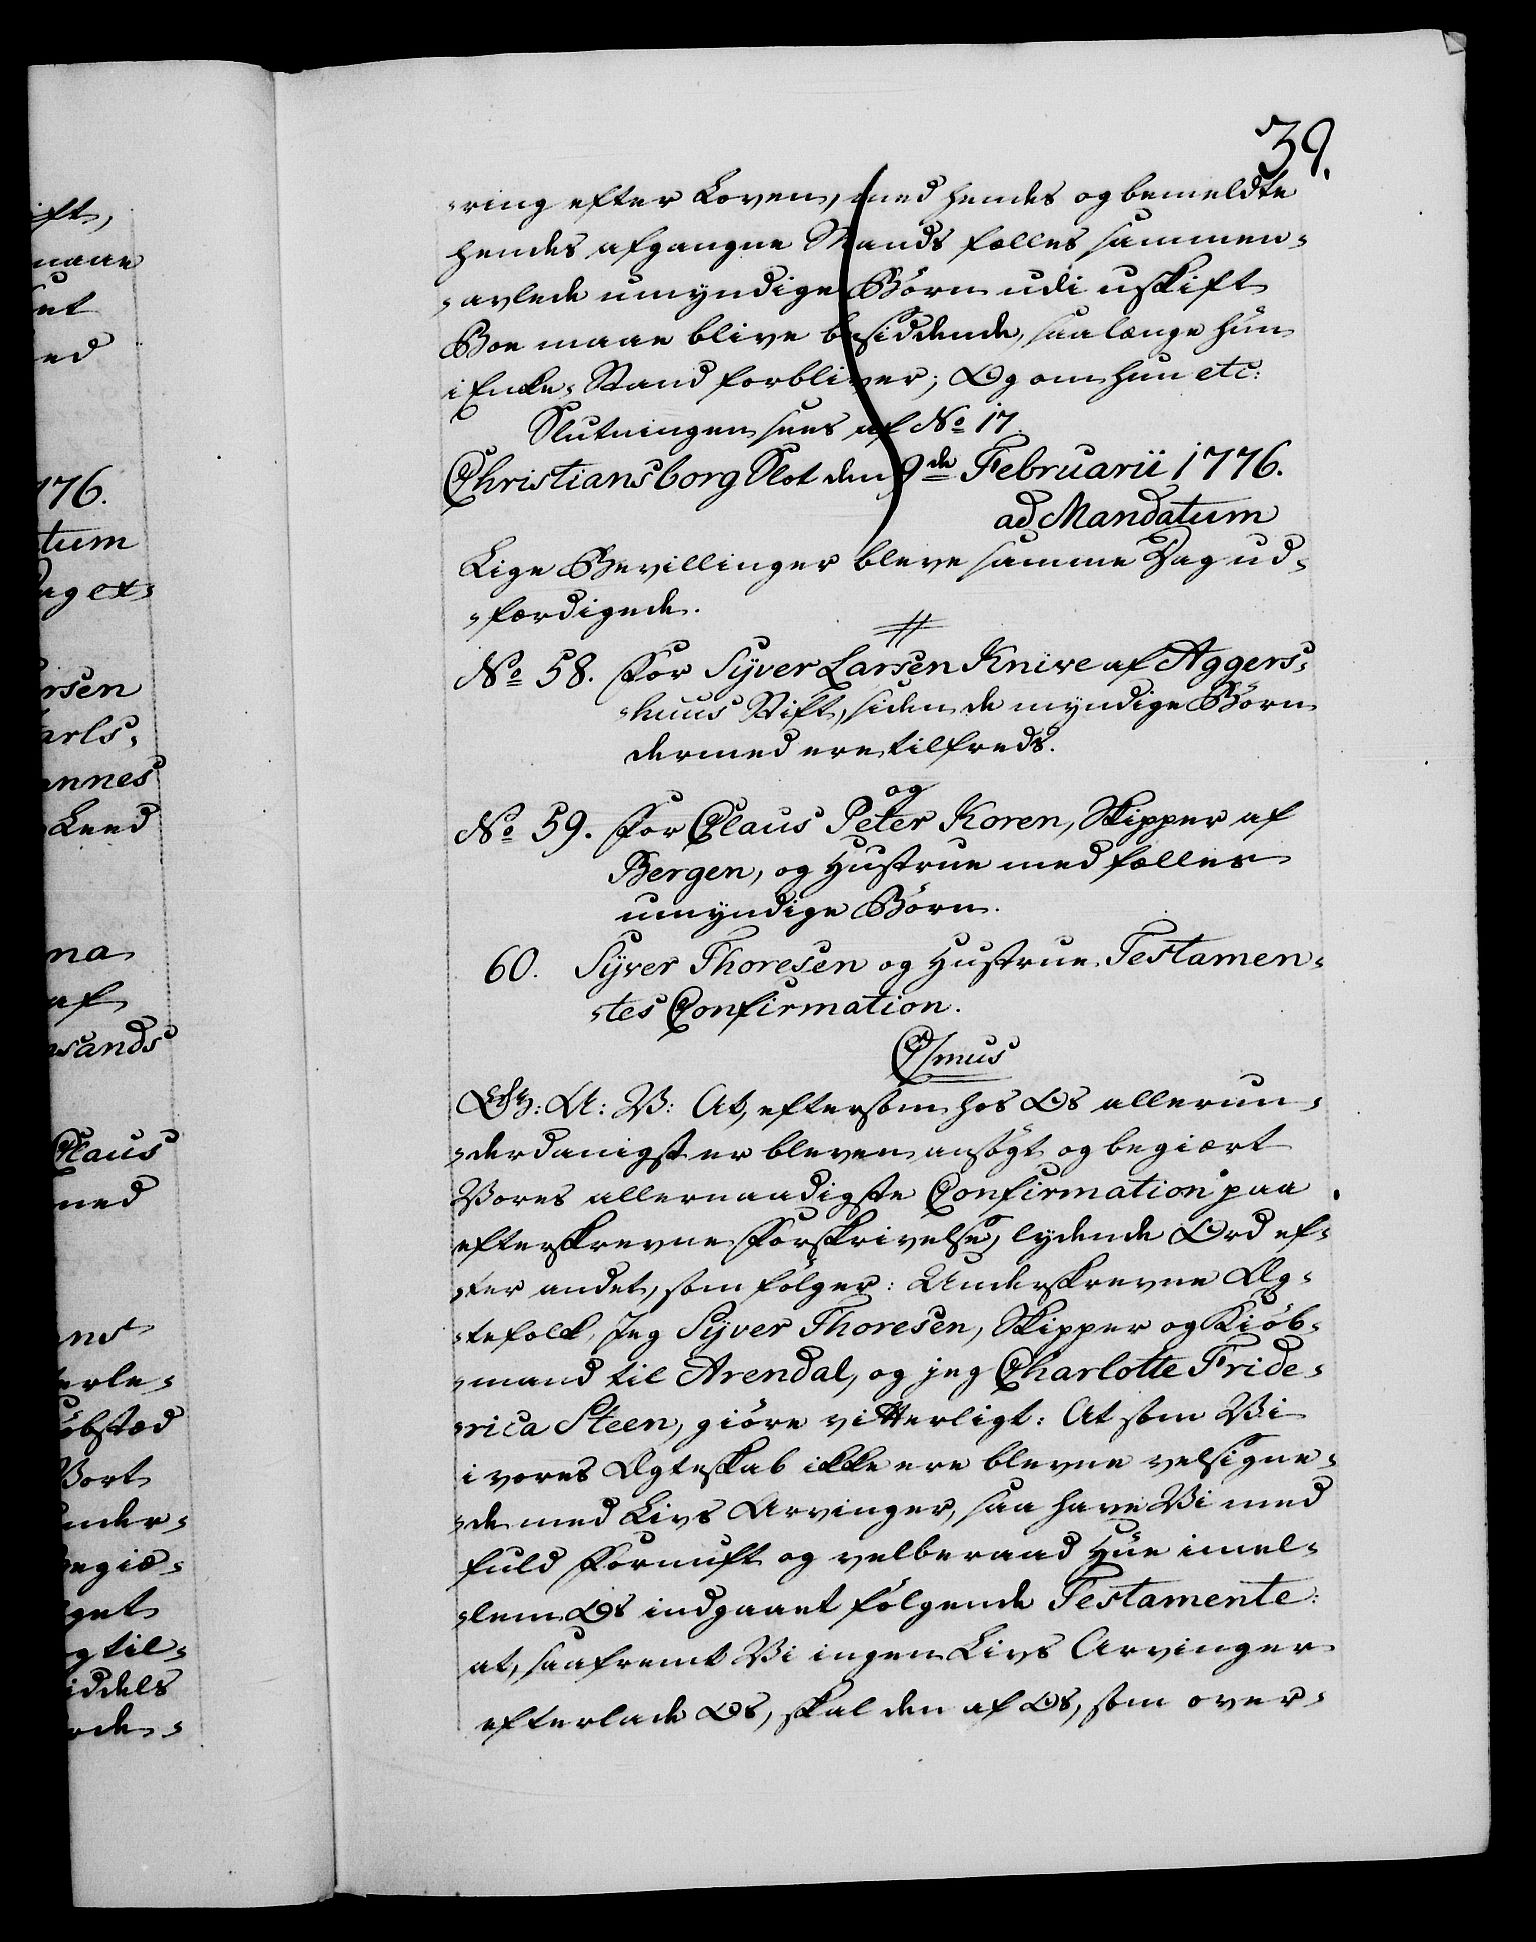 39.
ift,
maae
et
ed
776.
tum
ag ex=
rsen
arls=
annes
Leed
na
af
sands
Claus
med
ans
erle=
öbstæd
Vort
nder=
begiæ=
get
g til=
iddels
rde=
=ring efter Loven, med hendes og bemeldte
hendes afgangne Mands fælles sammen=
=avlede umyndige Børn udi uskift
Boe maae blive besiddende, saalænge hun
i Enke=Stand forbliver; Og om hun etc:
Slutningen sees af No 17.
Christiansborg Slot den 9de Februarii 1776.
ad Mandatum
Lige Bevillinger bleve samme Dag ud=
=færdigede.
No 58. For Syver Larsen Knive af Aggers=
=huus Stift, siden de myndige Børn
dermed ere tilfreds.
og
No 59. For Claus Peter Koren, Skipper af
Bergen, og Hustrue med fælles
umyndige Børn.
60. Syver Thoresen og Hustrue Testamen=
=tes Confirmation.
C7mus
G: A: V: At, eftersom hos Os allerun=
=derdanigst er bleven ansögt og begiært
Vores allernaadigste Confirmation paa
efterskrevne Forskrivelse, lydende Ord ef=
=ter andet, som fölger: Underskrevne Æg=
=tefolk, Jeg Syver Thoresen, Skipper og Kiöb=
=mand til Arendal, og jeg Charlotte Fride=
=rica Steen, giöre vitterligt: At som Vi
i vores Ægteskab ikke ere blevne velsigne=
=de med Livs Arvinger, saa have Vi med
fuld Fornuft og velberaad Hue imel=
=lem Os indgaaet fölgende Testamente:
at, saafremt Vi ingen Livs Arvinger
efterlade Os, skal den af Os, som over=